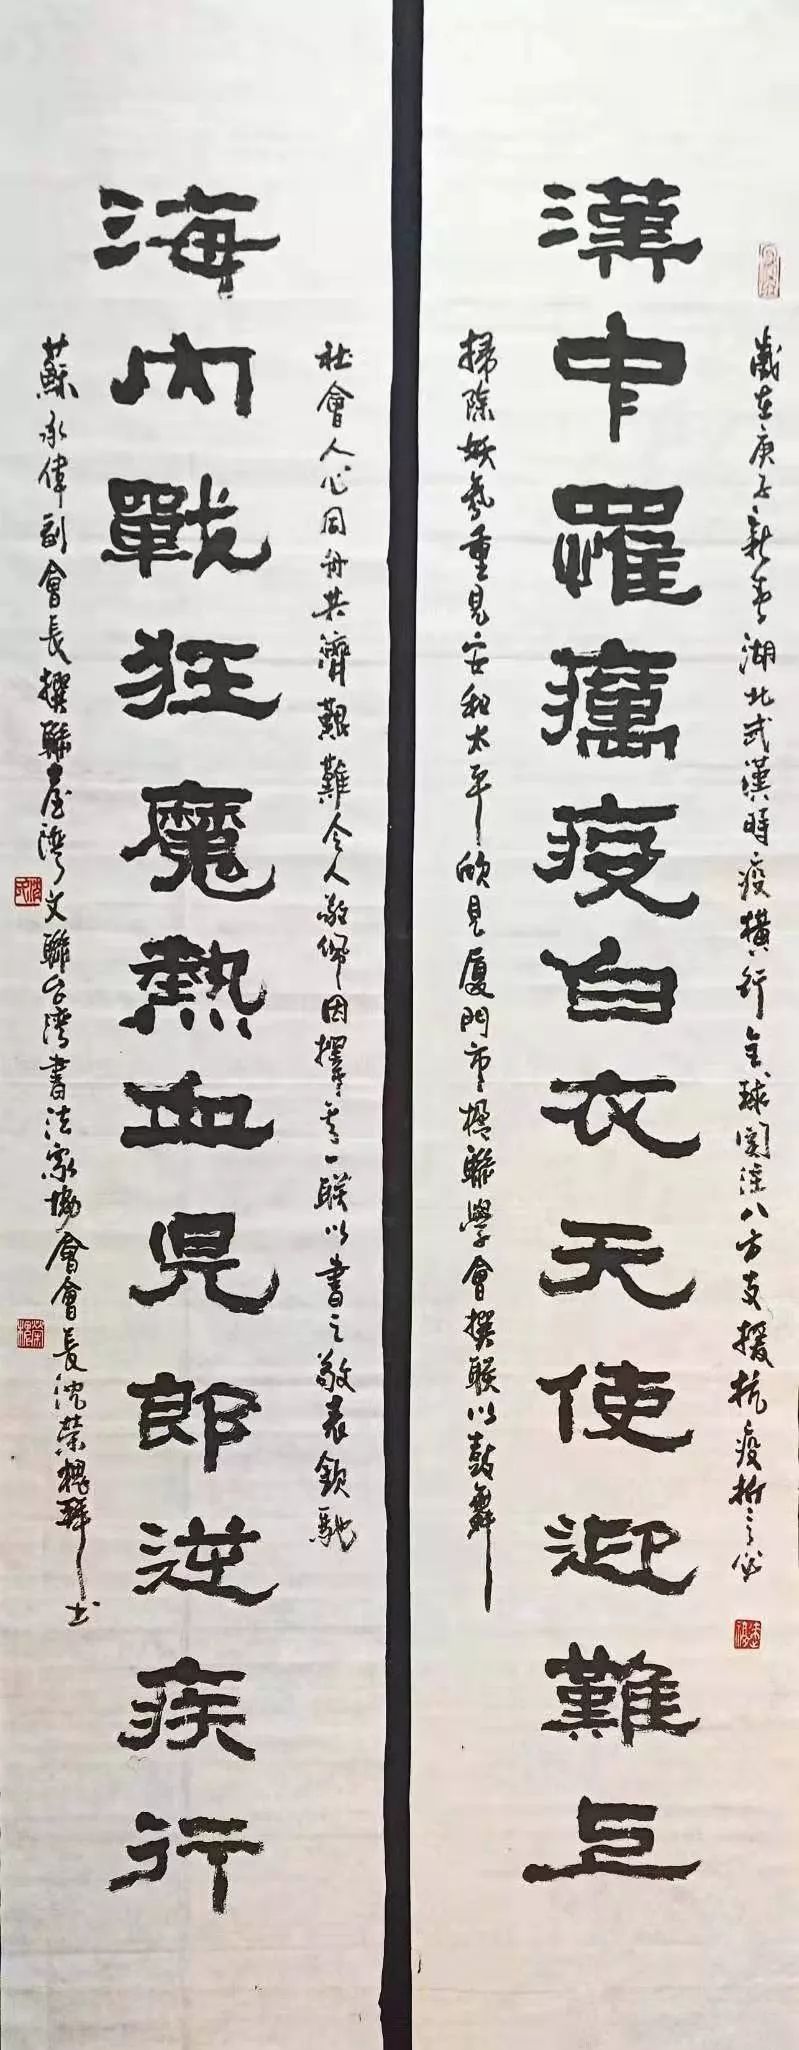 歲在庚子新春湖北武漢時疫橫行全球關注八方支援抗疫
漢中罹癘疫白衣天使迎難上
掃除妖氛重見安和太平欣見厦門市楹聯學會撰联以鼓舞
社會人心同舟共濟艱難令人敬佩因擇其一联以書之敬表欽馳
海內戰狂魔熱血兒郎逆疾行
蘇永偉副會長撰聯臺灣文聯台灣書法家協會會長沈榮槐拜书